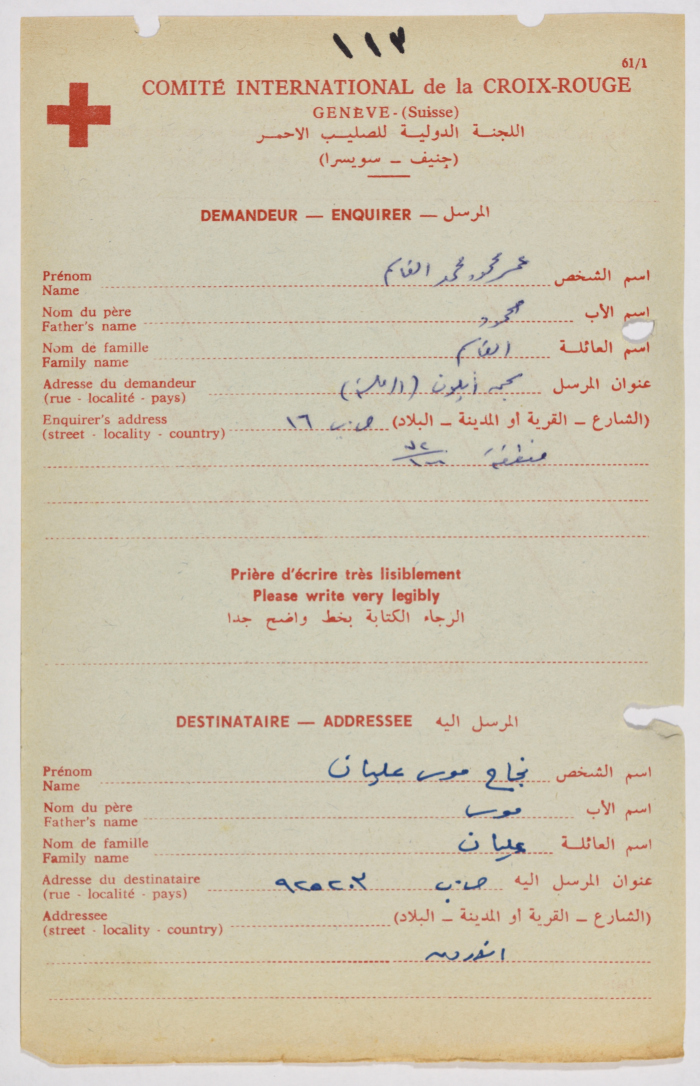 ١١٣
61/1
COMITÉ INTERNATIONAL de la CROIX-ROUGE
GENÈVE - (Suisse)
اللجنة الدولية للصليب الاحمر
(جنيف - سويسرا)
DEMANDEUR — ENQUIRER — المرسل
Prénom
Name
اسم الشخص عمر محمود محمد القاسم
Nom du père
Father's name
اسم الأب محمود
Nom de famille
Family name
اسم العائلة القاسم
Adresse du demandeur
(rue - localité - pays)
عنوان المرسل سجن أيلون (الرملة)
Enquirer's address
(street - locality - country)
(الشارع - القرية أو المدينة - البلاد) ص.ب ١٦
منطقة
Prière d'écrire très lisiblement
Please write very legibly
الرجاء الكتابة بخط واضح جدا
DESTINATAIRE — ADDRESSEE المرسل اليه
Prénom
Name
اسم الشخص نجاح موسى عليان
Nom du père
Father's name
اسم الأب موسى
Nom de famille
Family name
اسم العائلة عليان
Adresse du destinataire
(rue - localité - pays)
عنوان المرسل اليه ص.ب ٩٢٥٢٠٣
Addressee
(street - locality - country)
(الشارع - القرية أو المدينة - البلاد)